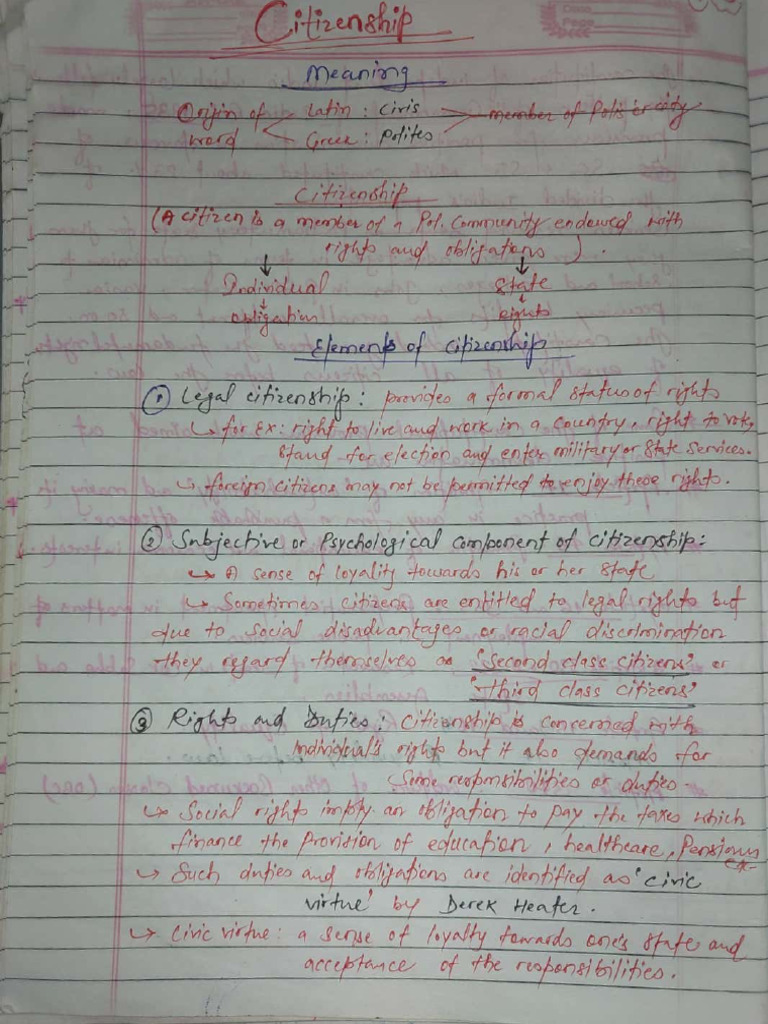 Citizenship
Meaning
Origin of word
Latin : Civis
Greek : Polites
member of Polis or city
Citizenship
(A citizen is a member of a Pol. Community endowed with
rights and obligations).
↓ ↓
Individual State
↓ ↓
obligation rights
Elements of citizenship
① Legal citizenship : provides a formal status of rights
↳ for Ex: right to live and work in a country, right to vote,
stand for election and enter military or State Services.
↳ foreign citizens may not be permitted to enjoy these rights.
② Subjective or Psychological component of citizenship :
↳ A sense of loyality towards his or her state
↳ Sometimes citizens are entitled to legal rights but
due to social disadvantages or racial discrimination
they regard themselves as 'Second class citizens' or
'Third class citizens'
③ Rights and Duties : Citizenship is concerned with
individual's rights but it also demands for
Some responsibilities or duties -
↳ Social rights imply an obligation to pay the taxes which
finance the provision of education, healthcare, Pensions
↳ Such duties and obligations are identified as 'civic
virtue' by Derek Heater.
↳ Civic virtue : a sense of loyalty towards one's state and
acceptance of the responsibilities.